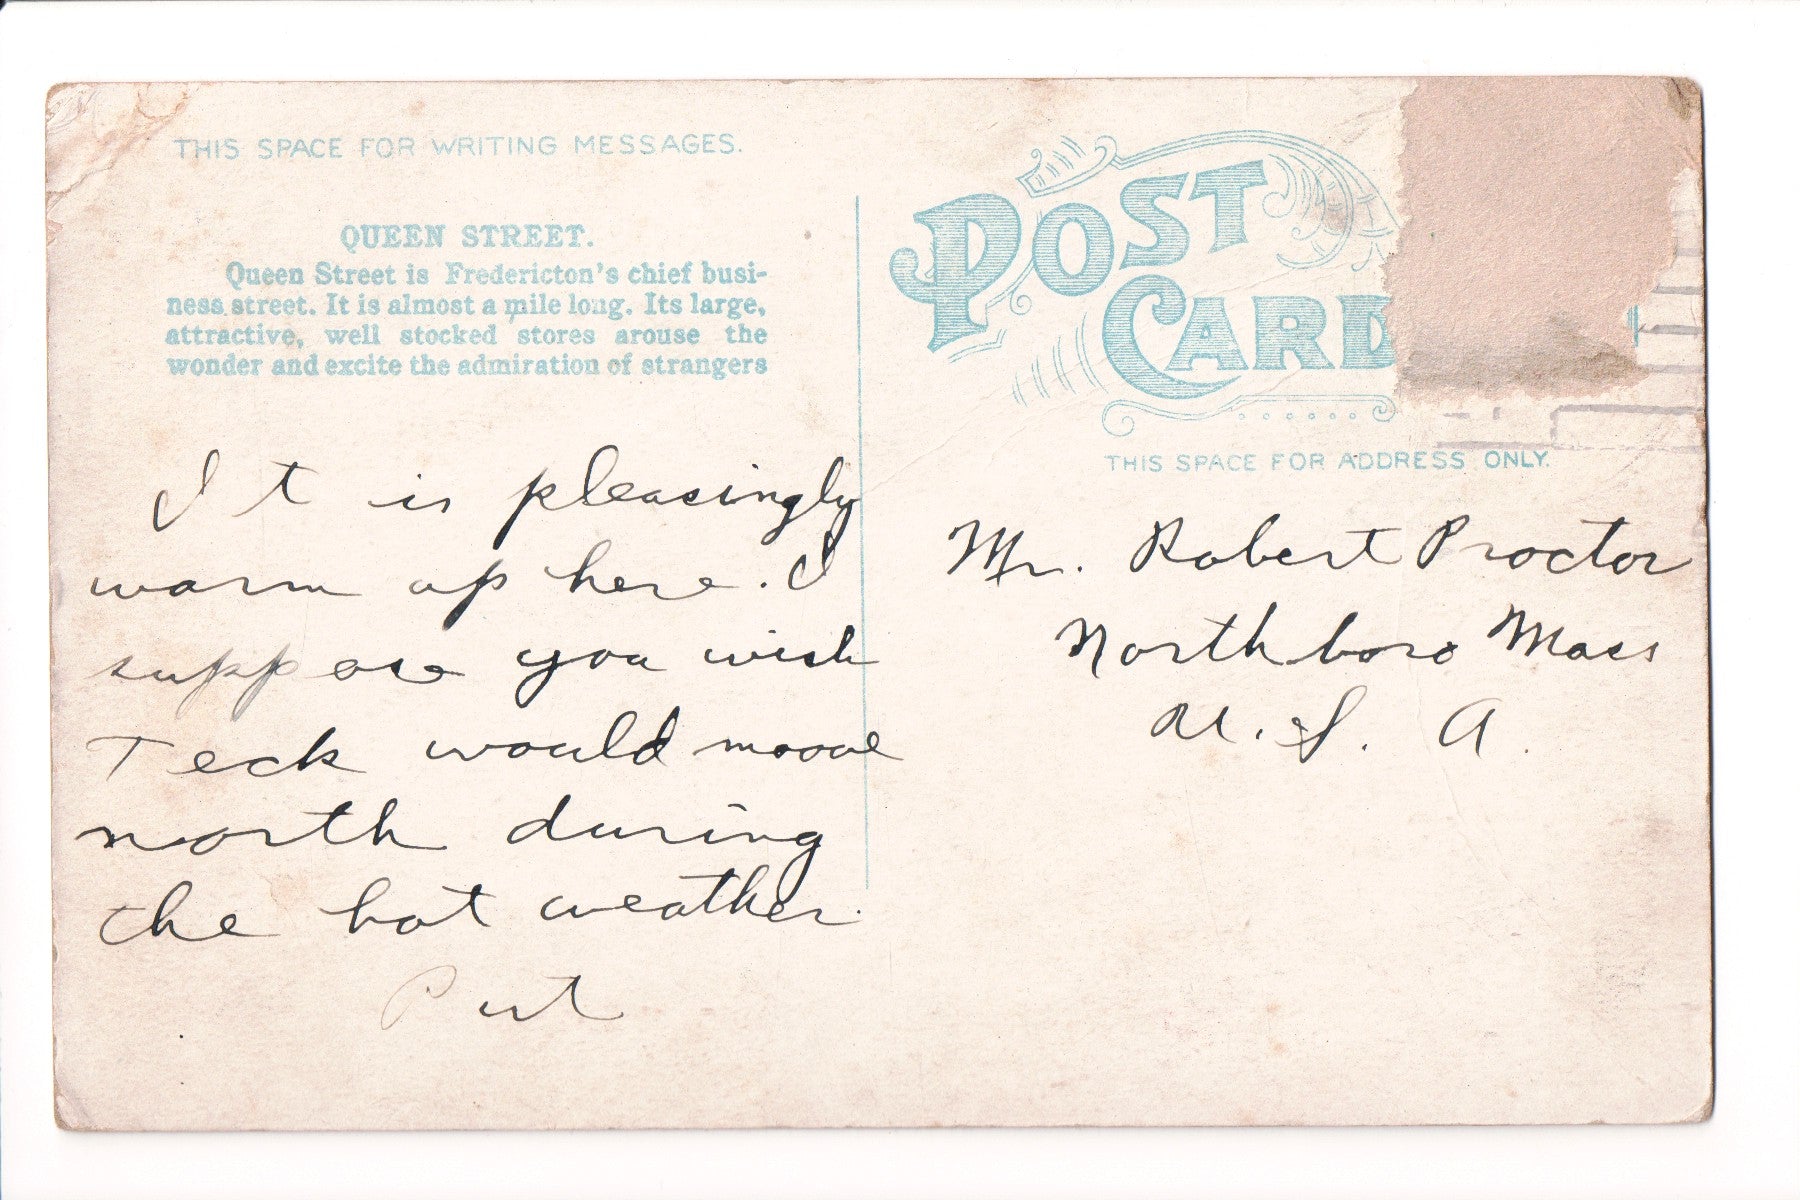 THIS SPACE FOR WRITING MESSAGES.
QUEEN STREET.
Queen Street is Fredericton's chief busi-
ness street. It is almost a mile long. Its large,
attractive, well stocked stores arouse the
wonder and excite the admiration of strangers
It is pleasingly
warm up here. I
suppose you wish
Teck would moove
north during
the hot weather.
POST
CARD
THIS SPACE FOR ADDRESS ONLY.
Mr. Robert Proctor
Northboro Mass
U. S. A.